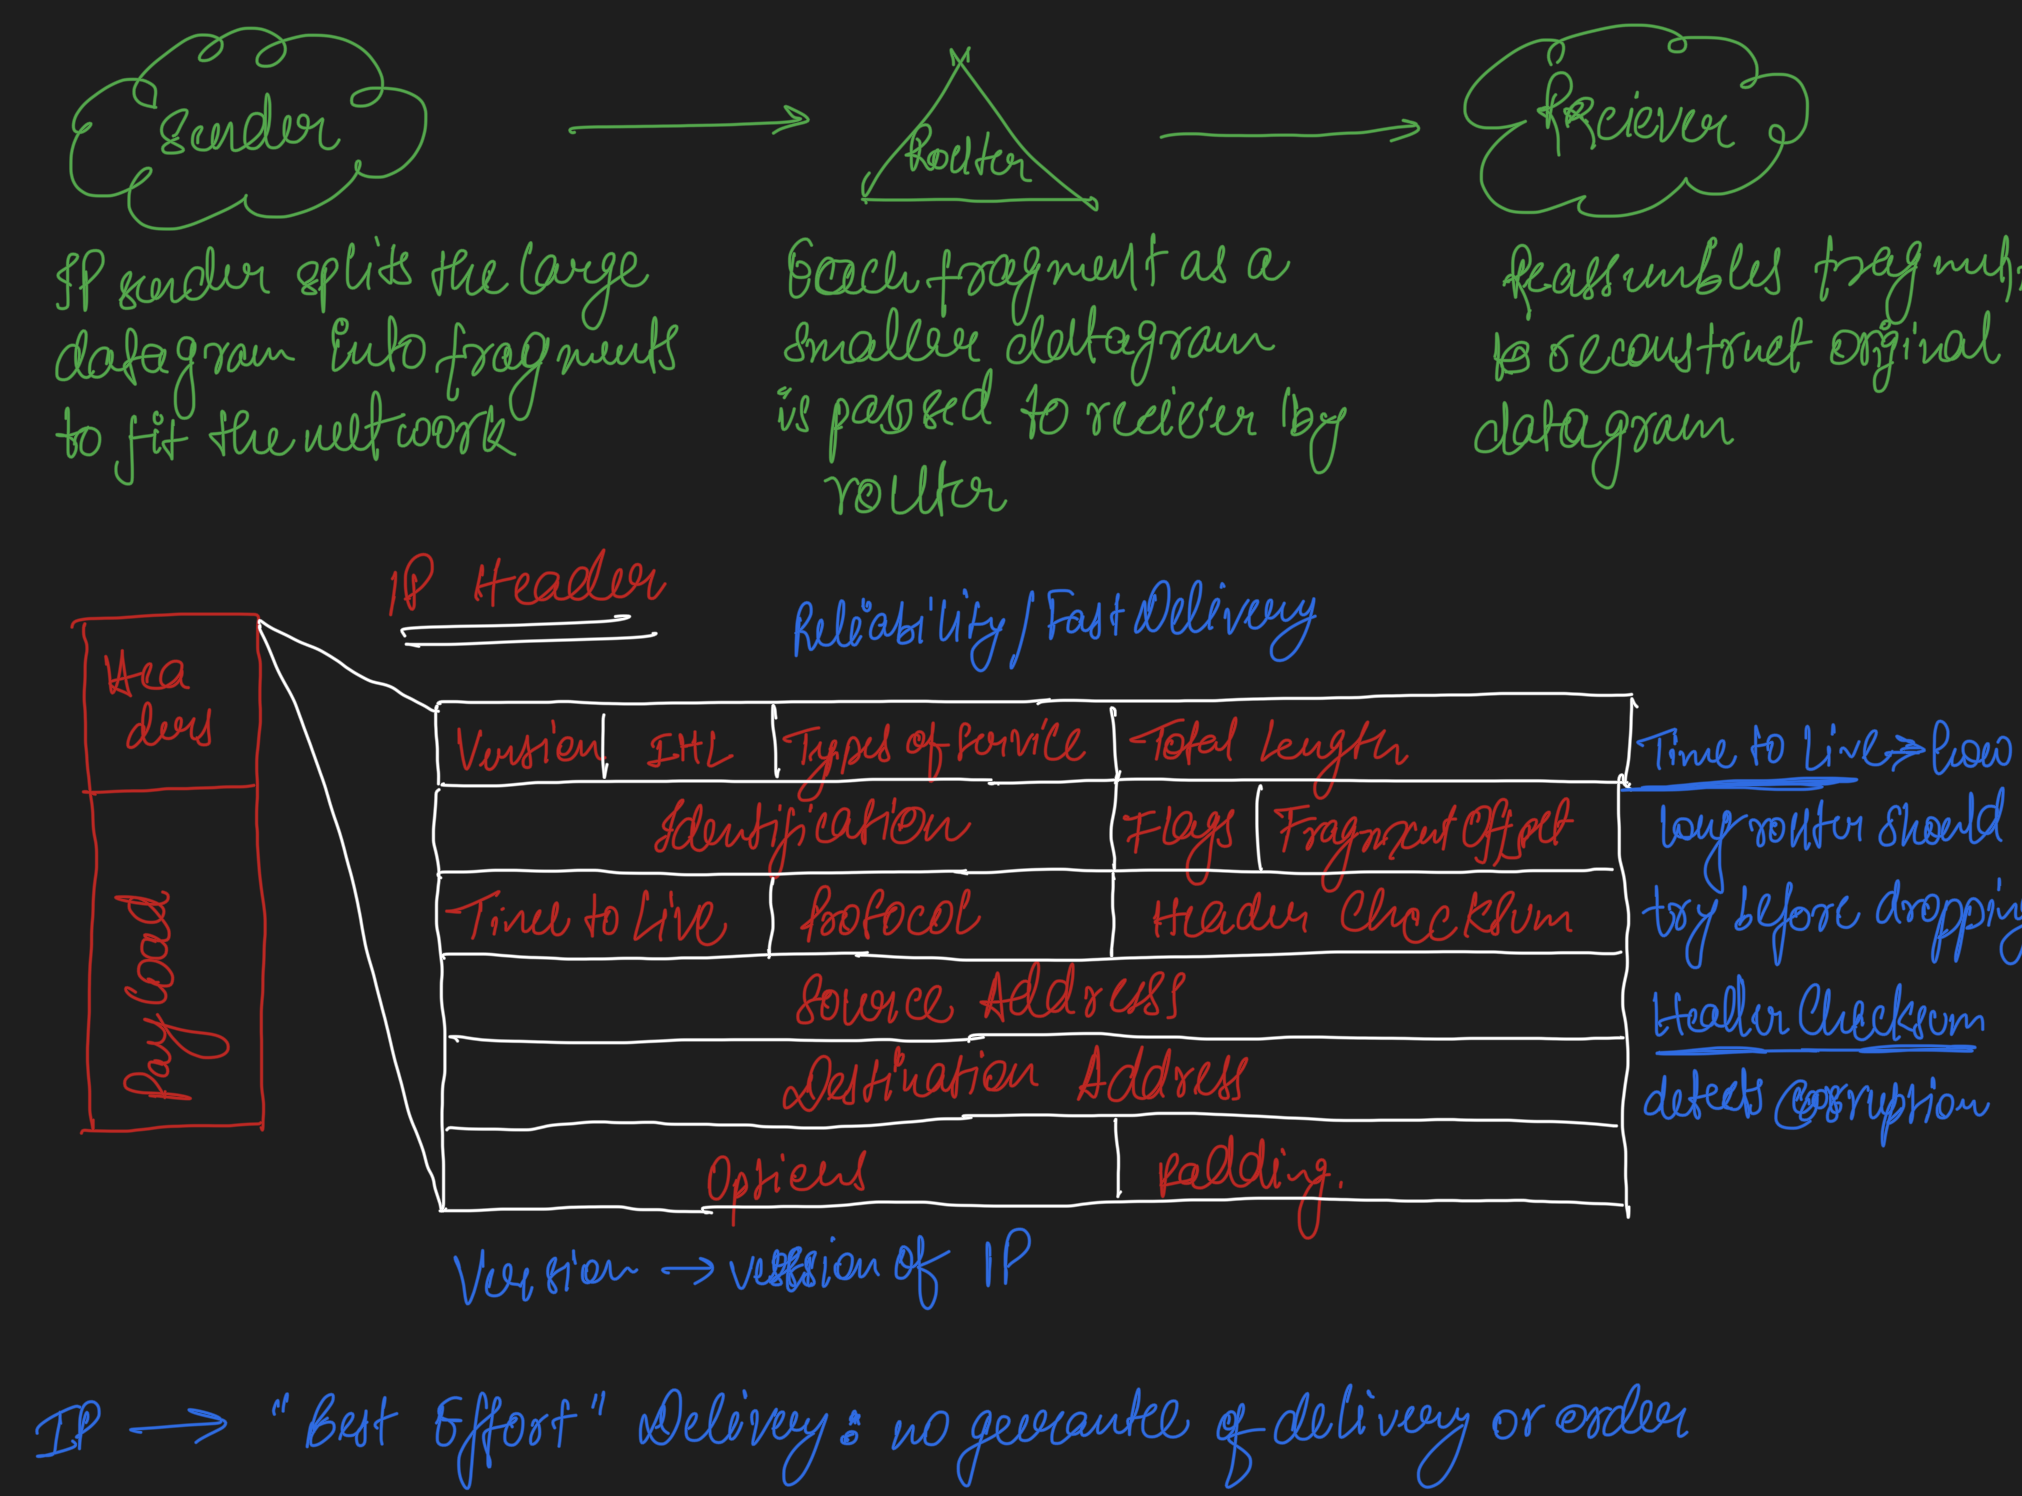 Sender
Router
Reciever
IP sender splits the large
datagram into fragments
to fit the network
Each fragment as a
smaller datagram
is passed to reciever by
router
Reassembles fragments
to reconstruct original
datagram
IP Header
Reliability / Fast Delivery
Hea
ders
Payload
Version IHL Types of Service Total Length
Identification Flags Fragment Offset
Time to Live Protocol Header Checksum
Source Address
Destination Address
Options Padding.
Time to Live → how
long router should
try before dropping
Header Checksum
detects corruption
Version → version of IP
IP → "Best Effort" Delivery: no guarantee of delivery or order